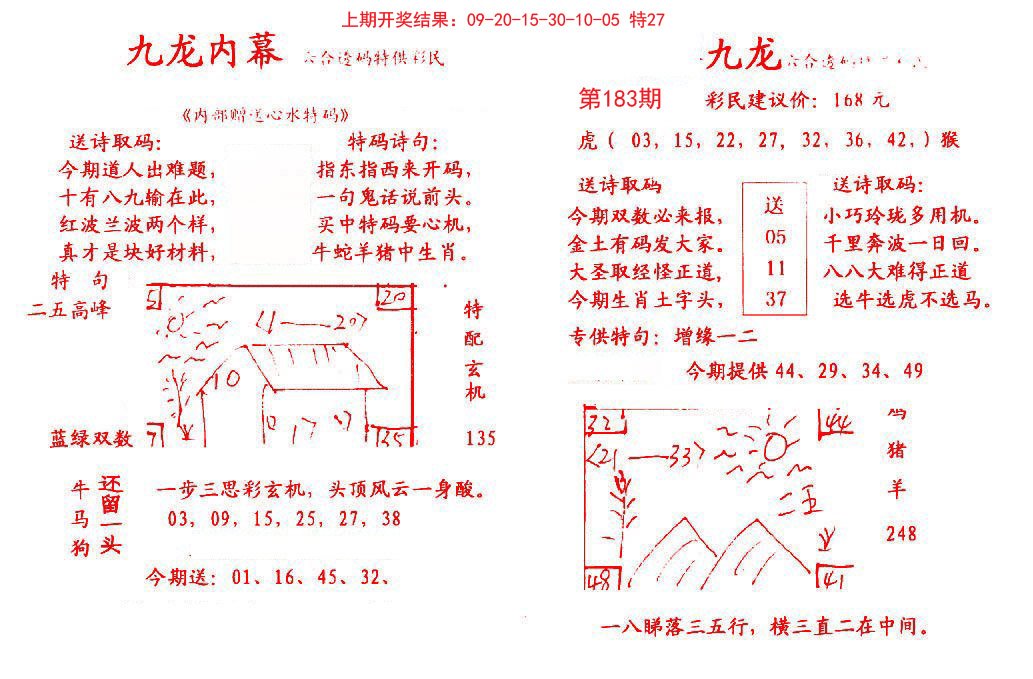 上期开奖结果：09-20-15-30-10-05 特27
九龙内幕 六合透码特供彩民
《内部赠送心水特码》
送诗取码：
今期道人出难题，
十有八九输在此，
红波兰波两个样，
真才是块好材料，
特码诗句：
指东指西来开码，
一句鬼话说前头。
买中特码要心机，
牛蛇羊猪中生肖。
特 句
二五高峰
蓝绿双数
5
20
<1——20>
10
7
35
特配玄机
135
牛马狗
还留一头
一步三思彩玄机，头顶风云一身酸。
03，09，15，25，27，38
今期送：01、16、45、32、
九龙 六合透码
第183期 彩民建议价：168元
虎（ 03，15，22，27，32，36，42，）猴
送诗取码
今期双数必来报，
金土有码发大家。
大圣取经怪正道，
今期生肖土字头，
送
05
11
37
送诗取码：
小巧玲珑多用机。
千里奔波一日回。
八八大难得正道
选牛选虎不选马。
专供特句：增缘一二
今期提供44、29、34、49
32
44
<21——33>
二五
48
41
鸡
猪
羊
248
一八睇落三五行，横三直二在中间。